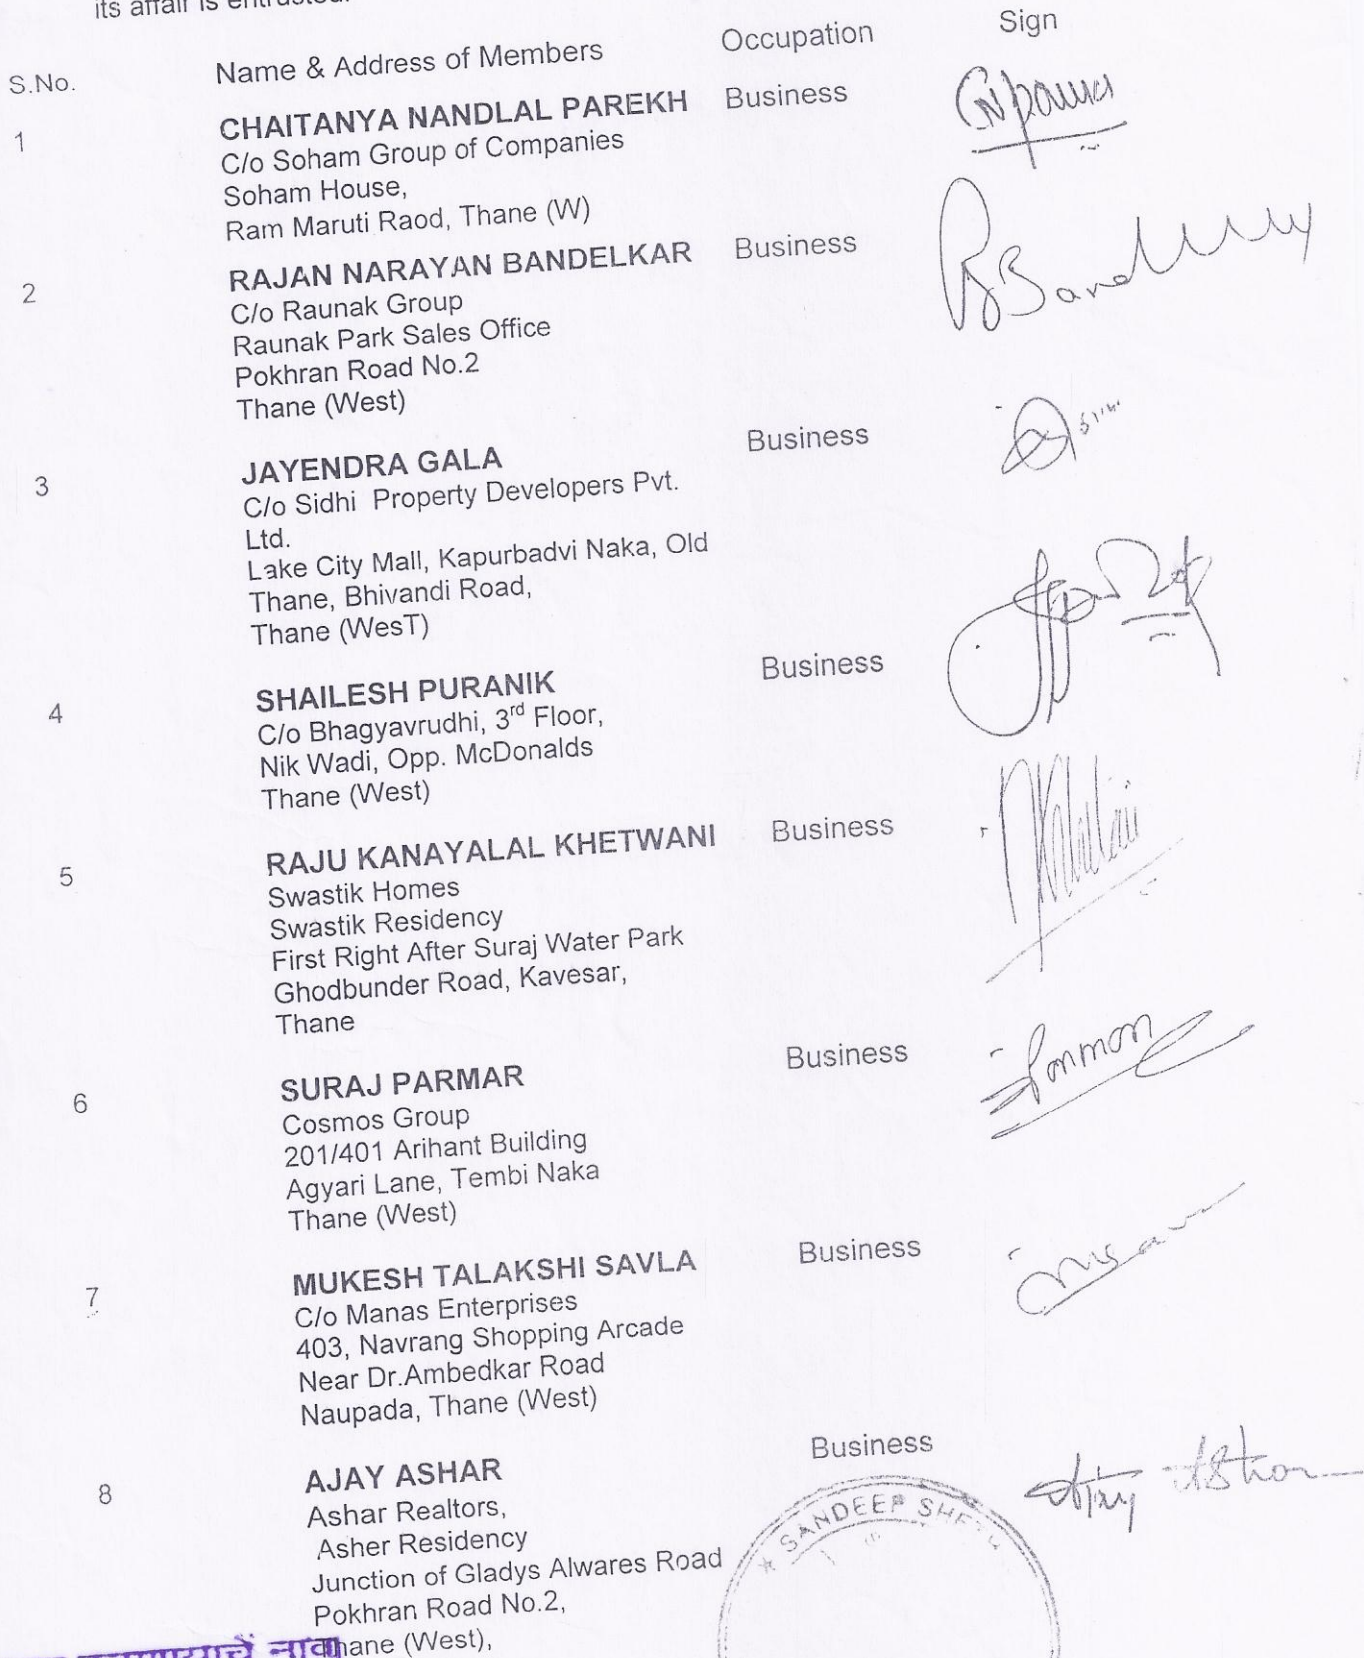 its affair is entrusted.
S.No. Name & Address of Members Occupation Sign
1 CHAITANYA NANDLAL PAREKH Business
C/o Soham Group of Companies
Soham House,
Ram Maruti Raod, Thane (W)
2 RAJAN NARAYAN BANDELKAR Business
C/o Raunak Group
Raunak Park Sales Office
Pokhran Road No.2
Thane (West)
3 JAYENDRA GALA Business
C/o Sidhi Property Developers Pvt.
Ltd.
Lake City Mall, Kapurbadvi Naka, Old
Thane, Bhivandi Road,
Thane (WesT)
4 SHAILESH PURANIK Business
C/o Bhagyavrudhi, 3rd Floor,
Nik Wadi, Opp. McDonalds
Thane (West)
5 RAJU KANAYALAL KHETWANI Business
Swastik Homes
Swastik Residency
First Right After Suraj Water Park
Ghodbunder Road, Kavesar,
Thane
6 SURAJ PARMAR Business
Cosmos Group
201/401 Arihant Building
Agyari Lane, Tembi Naka
Thane (West)
7 MUKESH TALAKSHI SAVLA Business
C/o Manas Enterprises
403, Navrang Shopping Arcade
Near Dr.Ambedkar Road
Naupada, Thane (West)
8 AJAY ASHAR Business Ajay Ashar
Ashar Realtors,
SANDEEP
Asher Residency
Junction of Gladys Alwares Road
Pokhran Road No.2,
Thane (West),
नाव